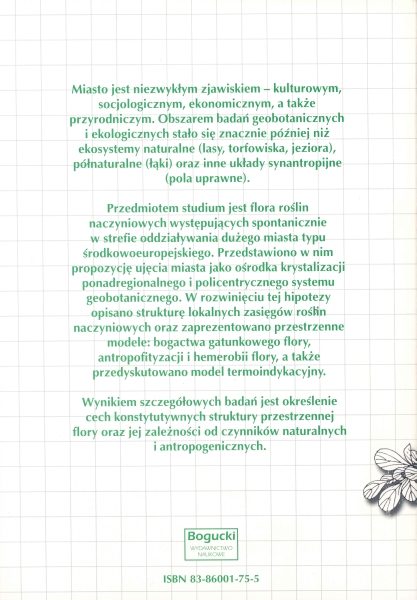 Miasto jest niezwykłym zjawiskiem – kulturowym,
socjologicznym, ekonomicznym, a także
przyrodniczym. Obszarem badań geobotanicznych
i ekologicznych stało się znacznie później niż
ekosystemy naturalne (lasy, torfowiska, jeziora),
półnaturalne (łąki) oraz inne układy synantropijne
(pola uprawne).
Przedmiotem studium jest flora roślin
naczyniowych występujących spontanicznie
w strefie oddziaływania dużego miasta typu
środkowoeuropejskiego. Przedstawiono w nim
propozycję ujęcia miasta jako ośrodka krystalizacji
ponadregionalnego i policentrycznego systemu
geobotanicznego. W rozwinięciu tej hipotezy
opisano strukturę lokalnych zasięgów roślin
naczyniowych oraz zaprezentowano przestrzenne
modele: bogactwa gatunkowego flory,
antropofityzacji i hemerobii flory, a także
przedyskutowano model termoindykacyjny.
Wynikiem szczegółowych badań jest określenie
cech konstytutywnych struktury przestrzennej
flory oraz jej zależności od czynników naturalnych
i antropogenicznych.
Bogucki
WYDAWNICTWO
NAUKOWE
ISBN 83-86001-75-5